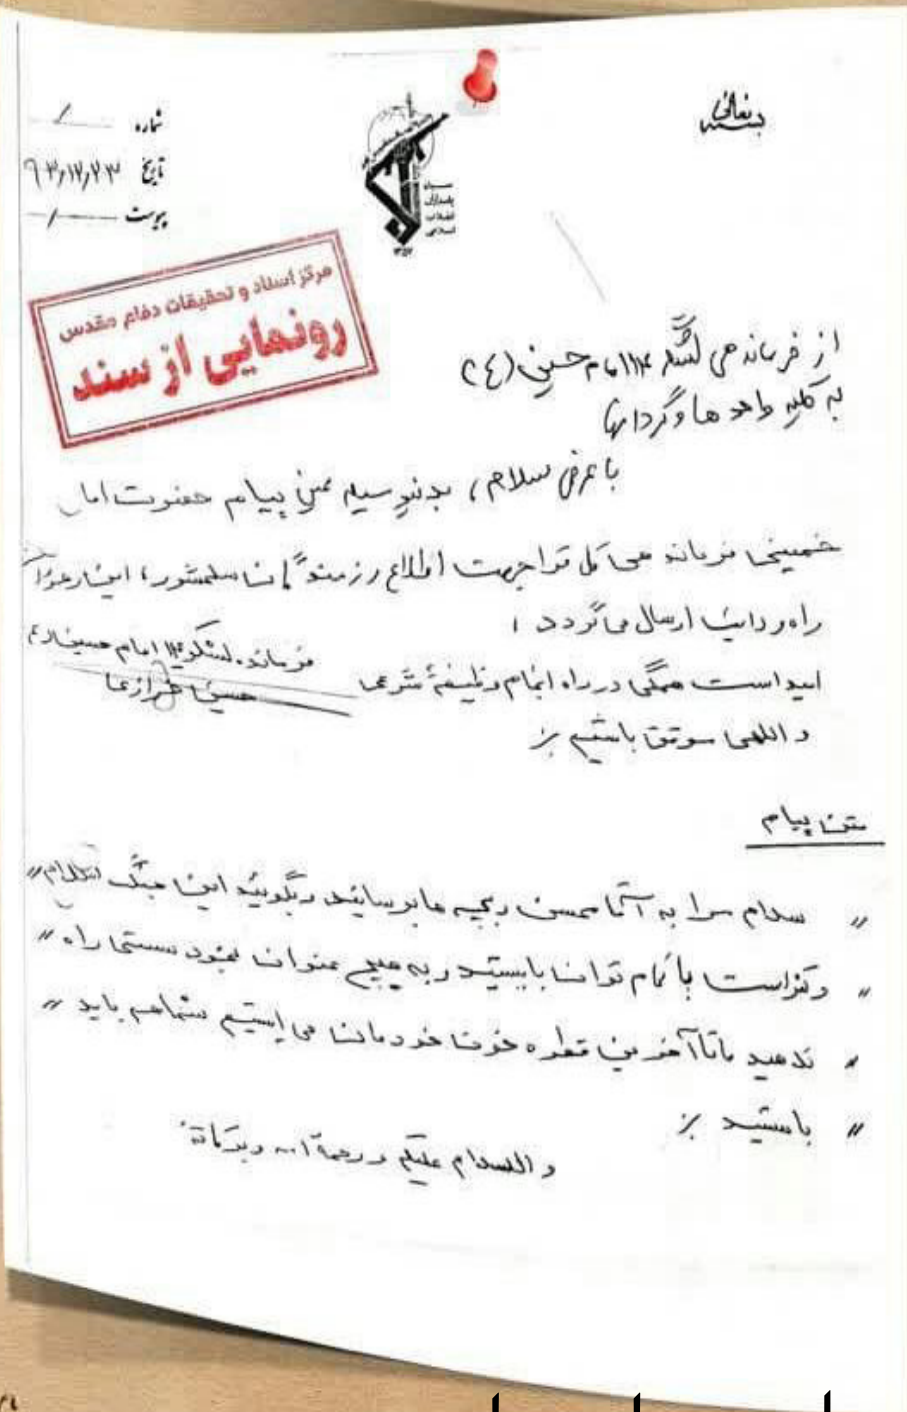 بسمه تعالی
شماره
تاریخ ۶۳٫۱۲٫۲۳
پیوست
سپاه
پاسداران
انقلاب
اسلامی
۱۳۵۷
مرکز اسناد و تحقیقات دفاع مقدس
رونمایی از سند
از فرماندهی لشگر ۱۴ امام حسین (ع)
به کلیه واحد ها و گردانها
با عرض سلام، بدینوسیله عین پیام حضرت امام
خمینی فرماندهی کل قوا جهت اطلاع رزمندگان سلحشور، ایثارگران
راه ارسال می گردد،
امید است همگی در راه انجام وظیفهٔ شرعی
و اللهی موفق باشیم
فرمانده لشکر ۱۴ امام حسین (ع)
حسین خرازی
متن پیام
" سلام مرا به آقا محسن و بچه ها برسانید و بگوئید این جنگ اسلام "
" و کفر است با تمام توان بایستید و به هیچ عنوان بخود سستی راه "
" ندهید ما تا آخرین قطره خون خودمان می ایستیم شما هم باید "
" بایستید
و السلام علیکم و رحمة الله و برکاته